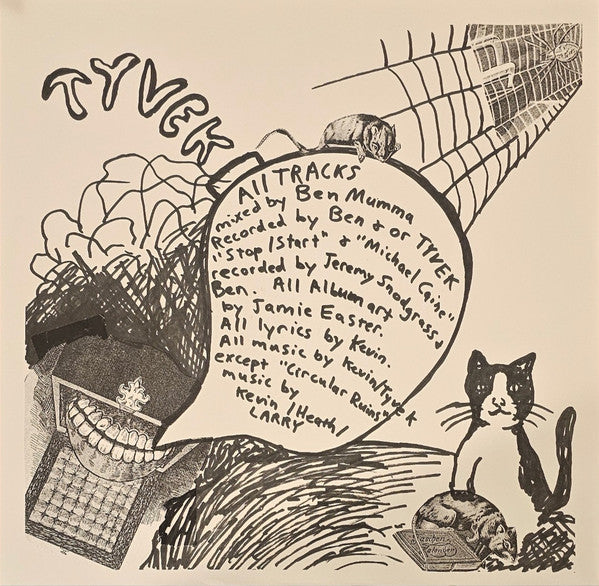 TYVEK
All TRACKS
mixed by Ben Mumma
Recorded by Ben & or TYVEK
"Stop/Start" & "Michael Caine"
recorded by Jeremy Snodgrass &
Ben. All Album art
by Jamie Easter.
All lyrics by Kevin.
All music by Kevin/Tyvek
except "Circular Ruins"
music by
Kevin/Heath/
LARRY